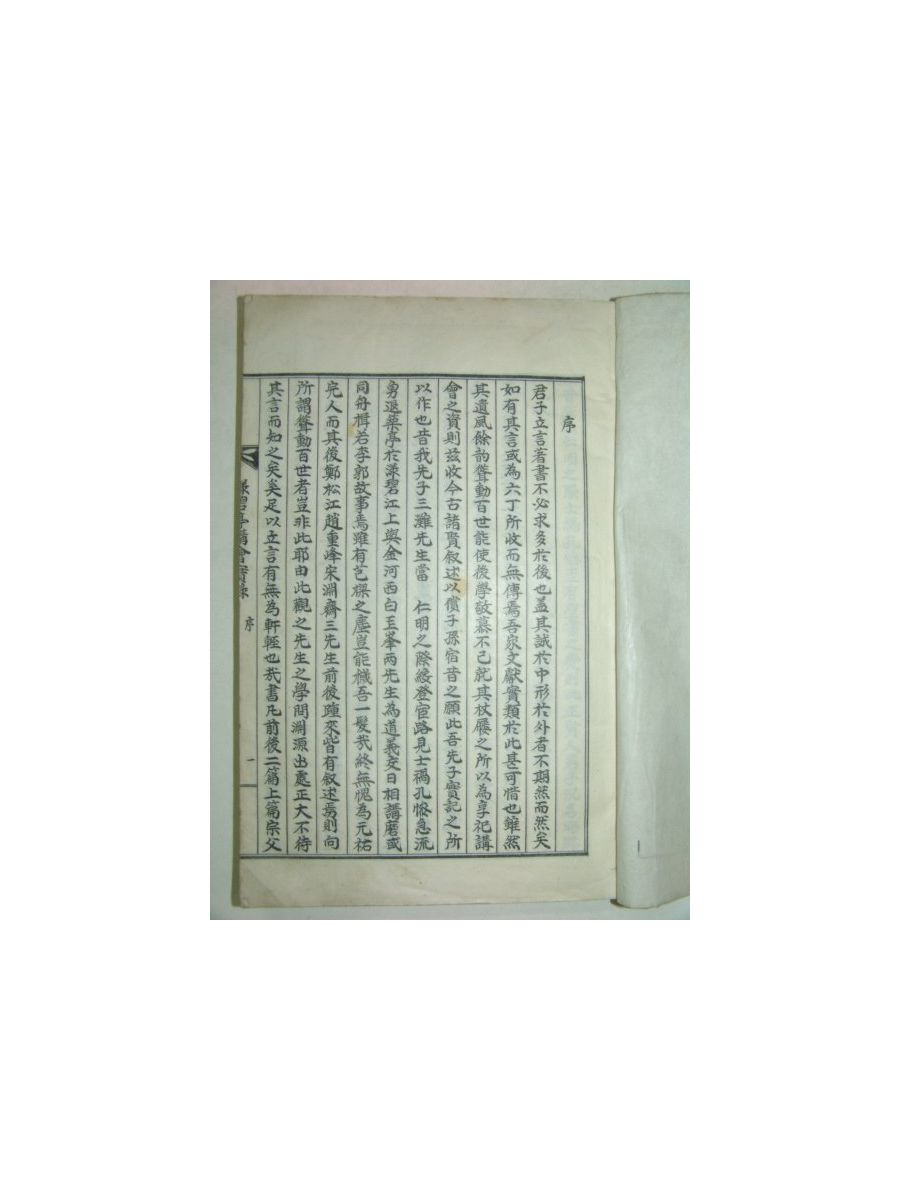 序
君子立言著書不必求多於後也盖其誠於中形於外者不期然而然矣
如有其言或為六丁所收而無傳焉吾家文獻實類於此甚可惜也雖然
其遺風餘韵聳動百世能使後學敬慕不已就其杖屨之所以為享祀講
會之資則玆收今古諸賢叙述以償子孫宿昔之願此吾先子實記之所
以作也昔我先子三灘先生當 仁明之際綏登宦路見士禍孔慘急流
勇退築亭於漾碧江上與金河西白玉峯兩先生為道義交日相講磨或
同舟楫若李郭故事焉雖有芭樑之塵豈能櫼吾一髮㢤終無愧為元祐
完人而其後鄭松江趙重峰宋淵齋三先生前後踵來皆有叙述焉則向
所謂聳動百世者豈非此耶由此觀之先生之學問淵源出處正大不待
其言而知之矣奚足以立言有無為軒輊也㢤書凡前後二篇上篇宗父
漾碧亭講會實錄 序 一